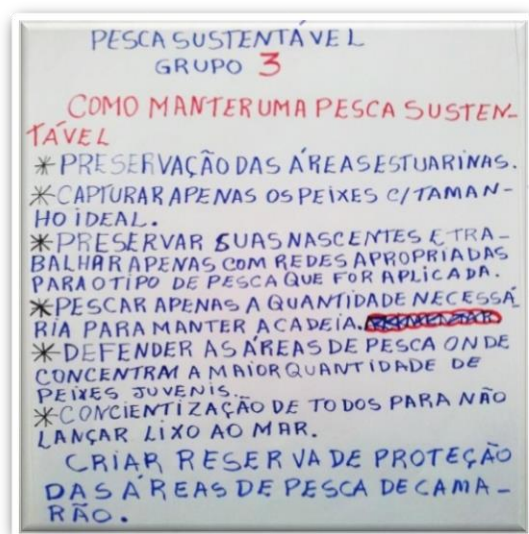 PESCA SUSTENTÁVEL
GRUPO 3
COMO MANTER UMA PESCA SUSTEN-
TÁVEL
* PRESERVAÇÃO DAS ÁREAS ESTUARINAS.
* CAPTURAR APENAS OS PEIXES C/ TAMAN-
HO IDEAL.
* PRESERVAR SUAS NASCENTES E TRA-
BALHAR APENAS COM REDES APROPRIADAS
PARA O TIPO DE PESCA QUE FOR APLICADA.
* PESCAR APENAS A QUANTIDADE NECESSÁ
RIA PARA MANTER A CADEIA.
* DEFENDER AS ÁREAS DE PESCA ONDE
CONCENTRA A MAIOR QUANTIDADE DE
PEIXES JUVENIS.
* CONCIENTIZAÇÃO DE TODOS PARA NÃO
LANÇAR LIXO AO MAR.
CRIAR RESERVA DE PROTEÇÃO
DAS ÁREAS DE PESCA DE CAMA-
RÃO.